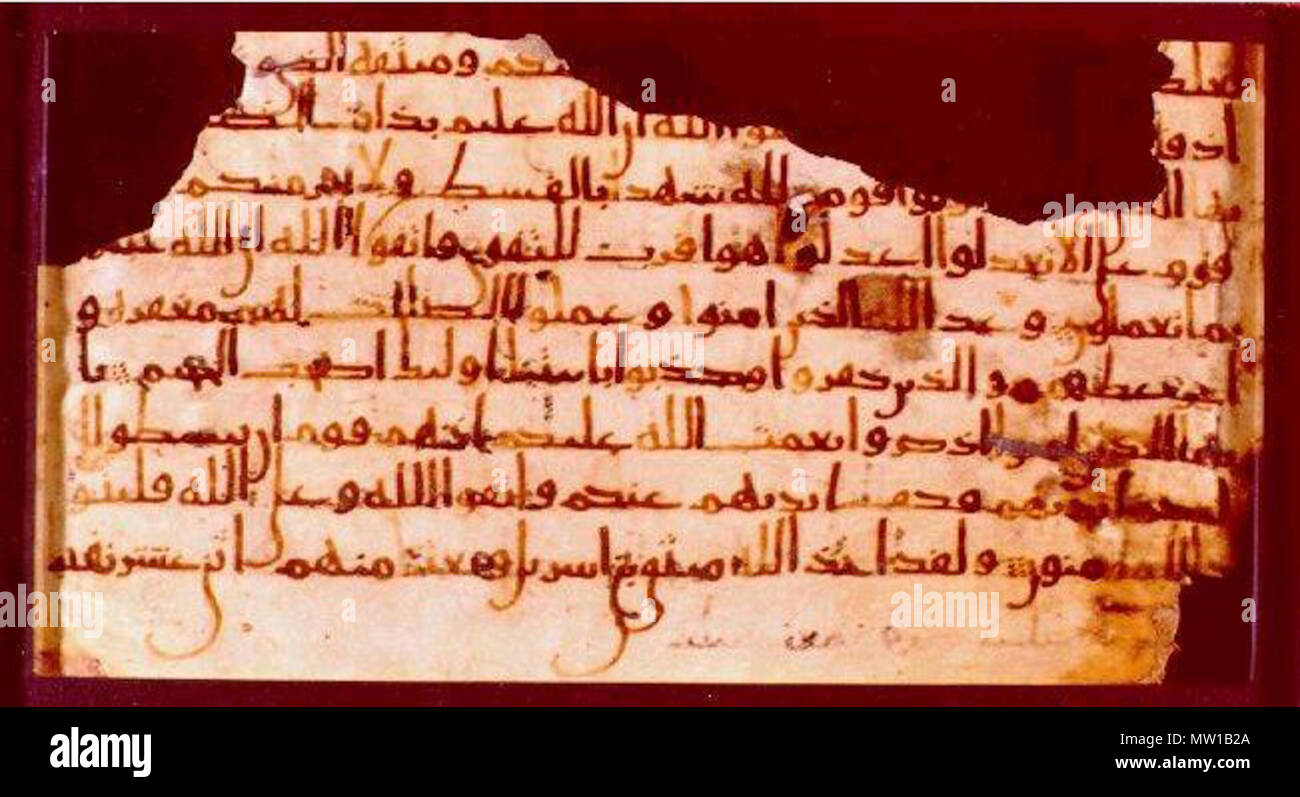 وميثقه الذي
اذ ق ـقوا الله ان الله عليم بذات الصد
يها الذ ـونوا قومين لله شهدا بالقسط ولا يجرمنكم
قوم على الا تعدلوا اعدلوا هو اقرب للتقوى واتقوا الله ان الله خبير
بما تعملون وعد الله الذين امنوا وعملوا الصلحت لهم مغفرة و
اجر عظيم والذين كفروا وكذبوا بايتنا اولئك اصحب الجحيم يا
يها الذين امنوا اذكروا نعمت الله عليكم اذ هم قوم ان يبسطوا ا
ليكم ايديهم فكف ايديهم عنكم واتقوا الله وعلى الله فليتو
كل المومنون ولقد اخذ الله ميثق بني اسريل وبعثنا منهم اثني عشر نقيبا
alamy
Image ID: MW1B2A
www.alamy.com